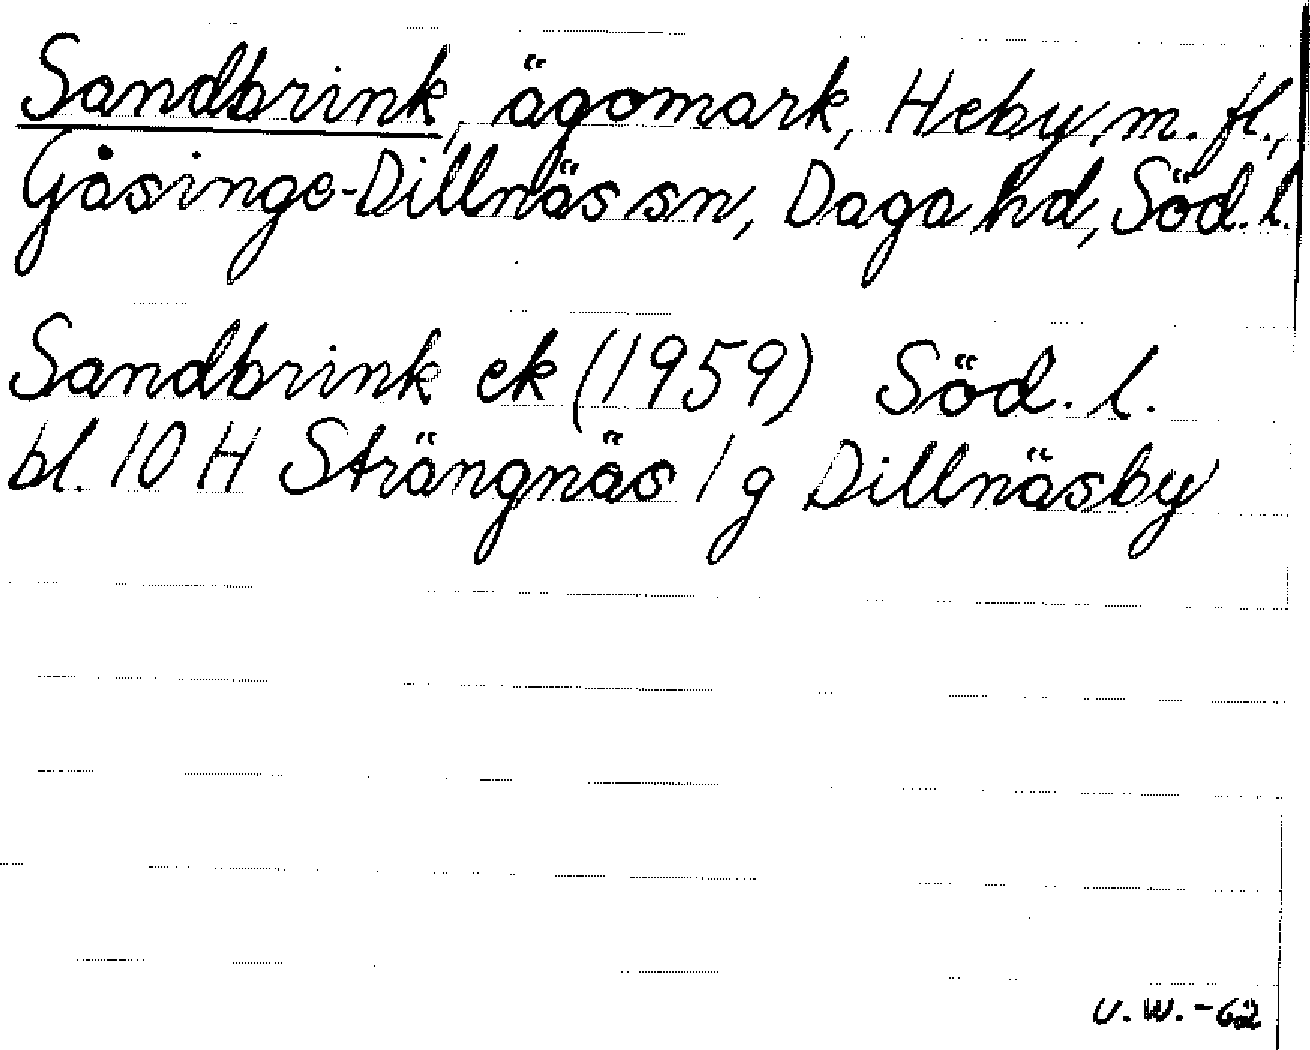 Sandbrink, ägomark, Heby m. fl.,
Gåsinge-Dillnäs sn, Daga hd, Söd. l.
Sandbrink ek (1959) Söd. l.
bl. 10 H Strängnäs 1 g Dillnäsby
U. W. - 62